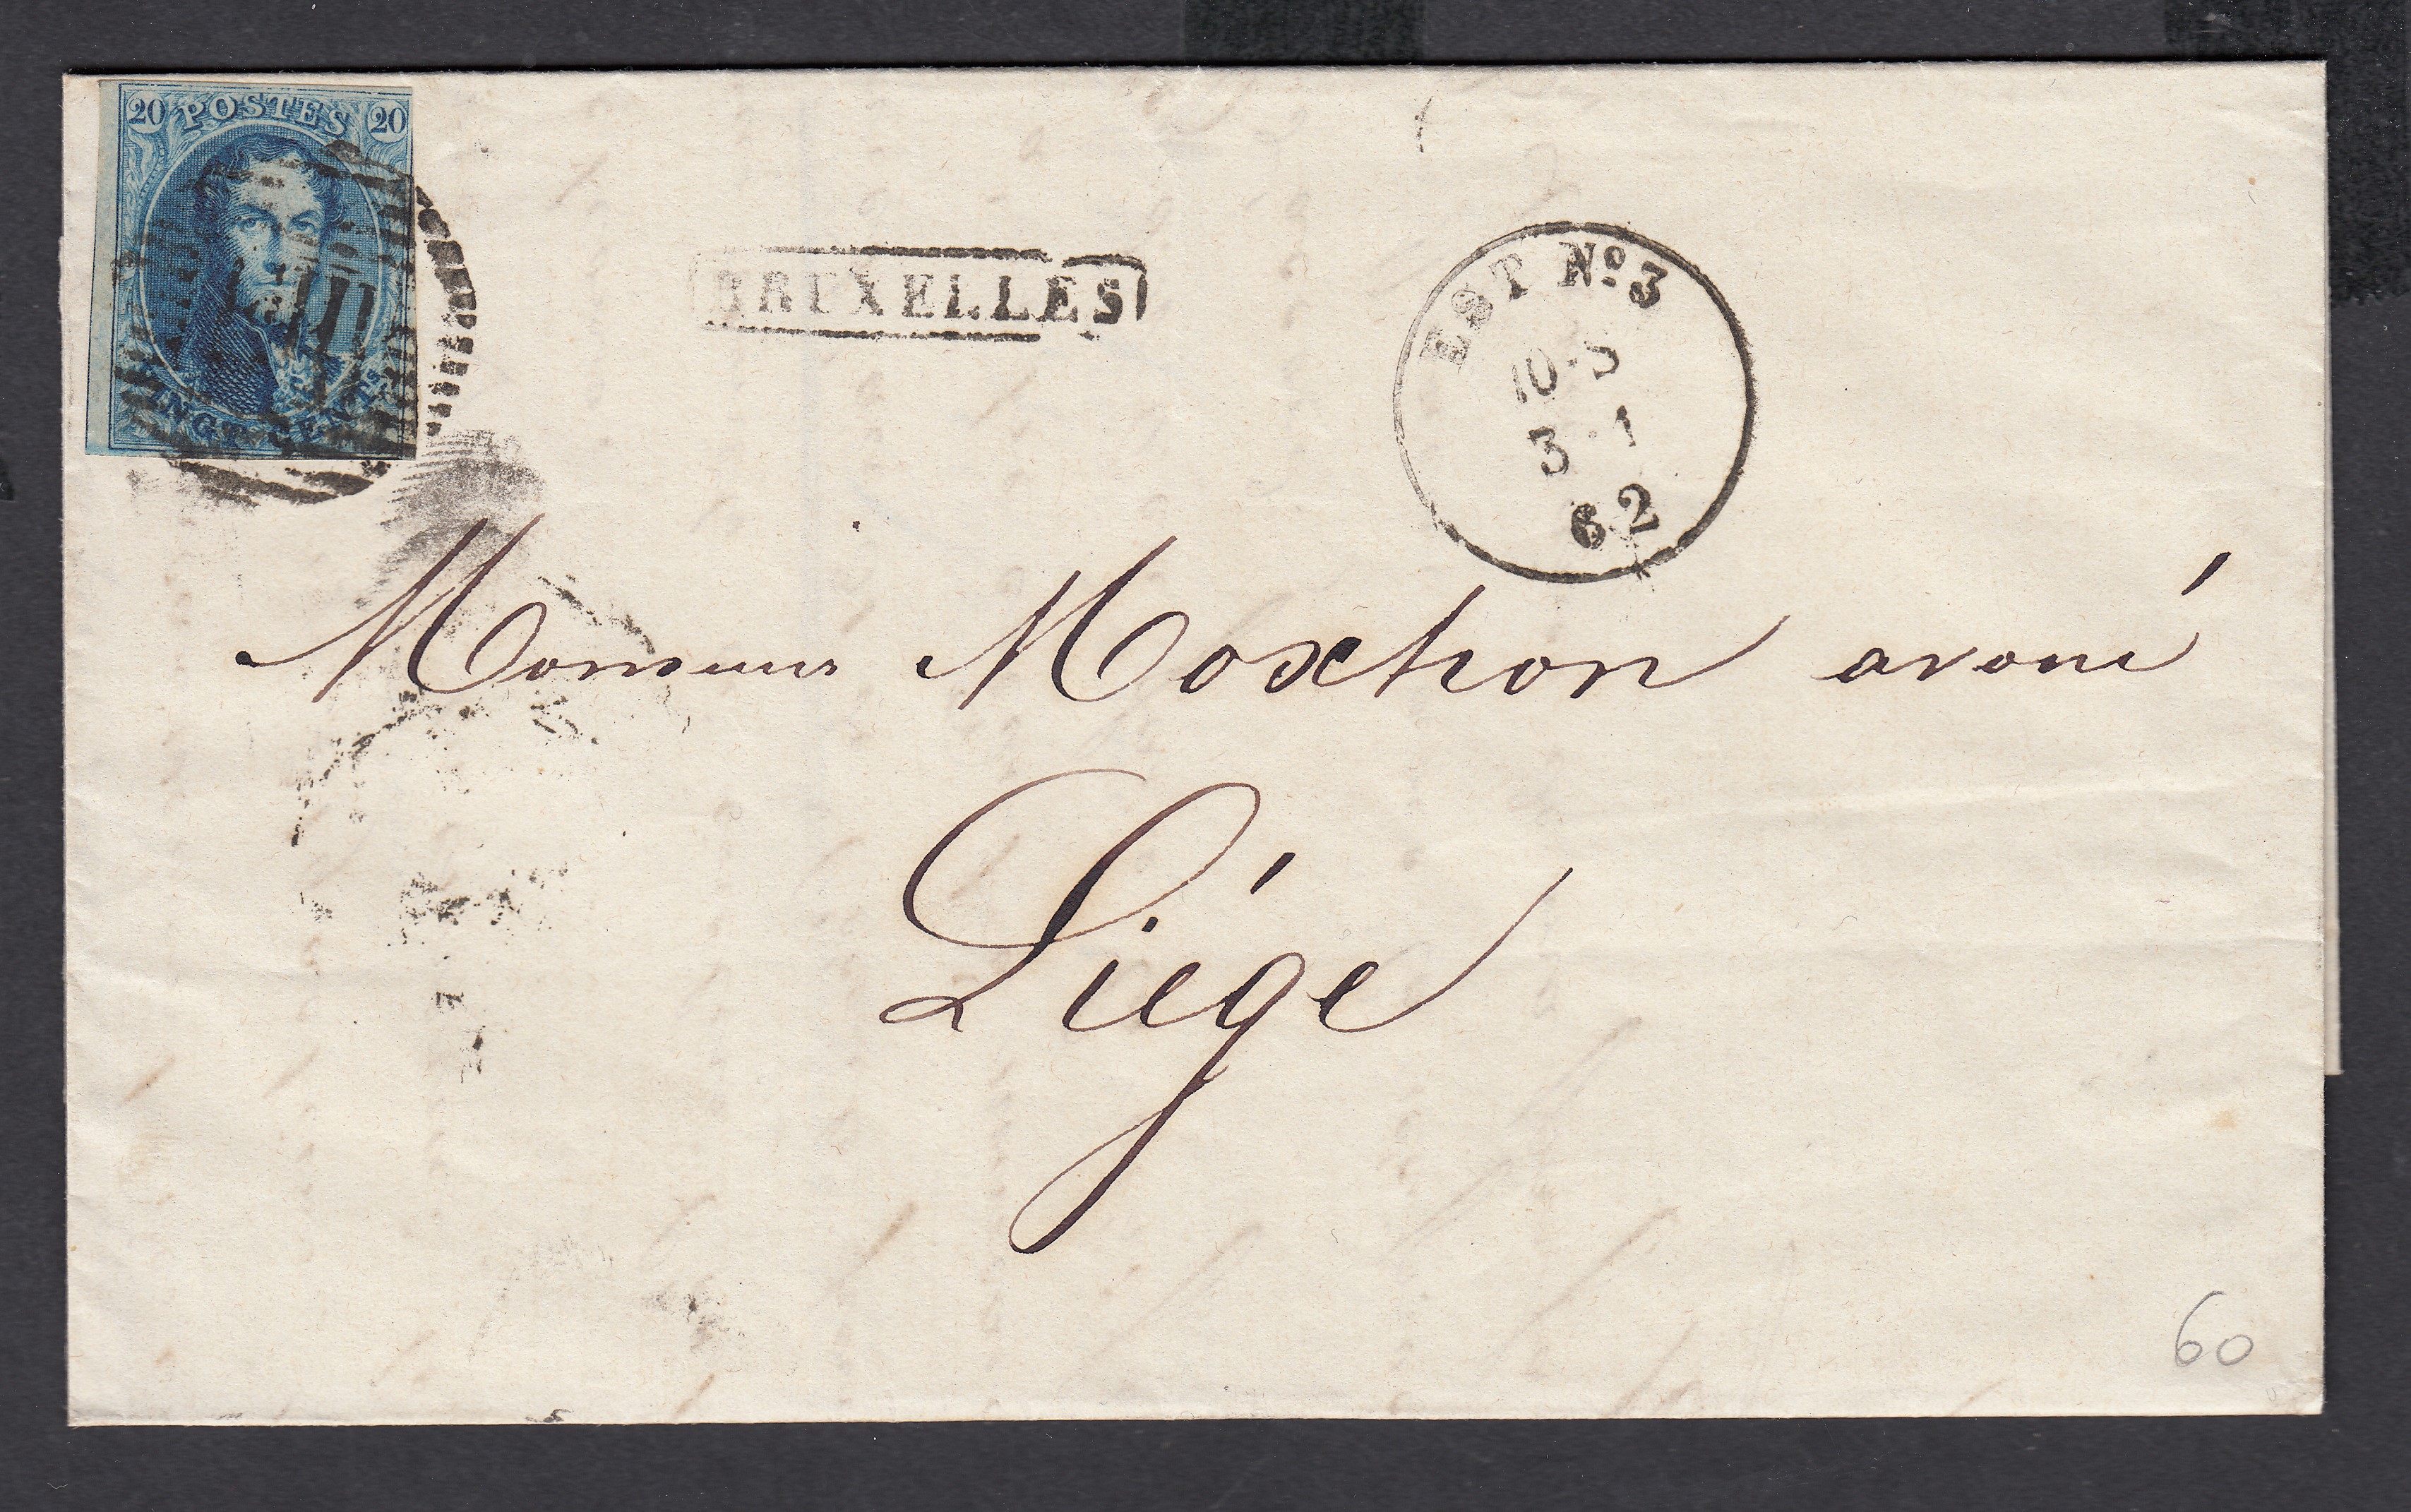 20 POSTES 20
VINGT CENTS
BRUXELLES
EST Nº 3
10·S
3·1
62
Monsieur Moxhon avoué
Liége
60